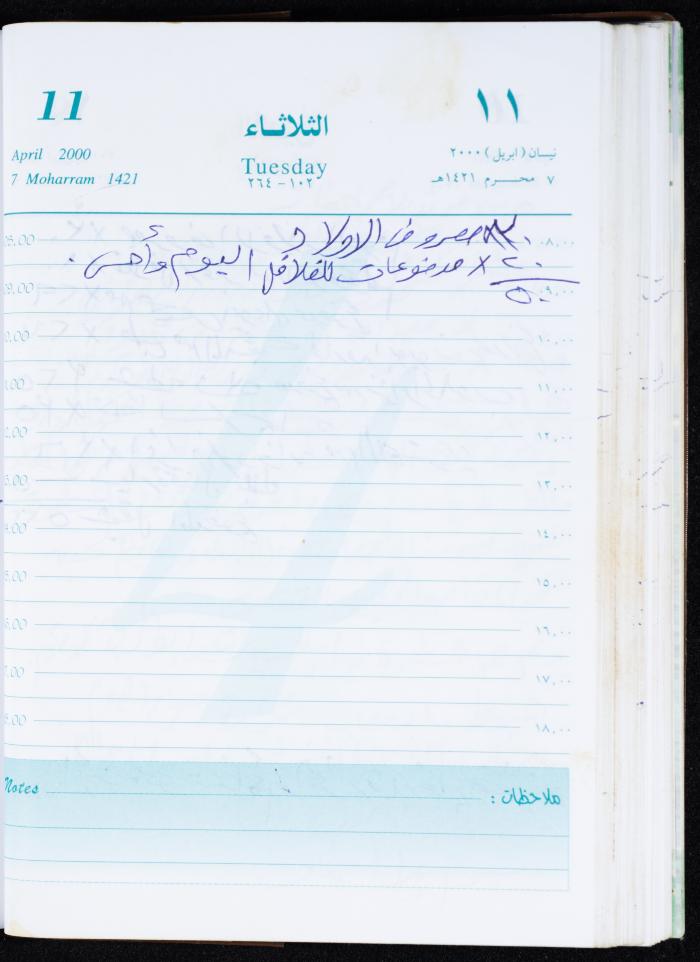 11
الثلاثاء
١١
April 2000
Tuesday
نيسان (ابريل) ٢٠٠٠
7 Moharram 1421
٢٦٤-١٠٢
٧ محرم ١٤٢١هـ
٣٠ × مصروف الاولاد
٢٠ × مدفوعات للفلافل اليوم وأمس .
٥٠
08.00 ٠٨,٠٠
09.00 ٠٩,٠٠
10.00 ١٠,٠٠
11.00 ١١,٠٠
12.00 ١٢,٠٠
13.00 ١٣,٠٠
14.00 ١٤,٠٠
15.00 ١٥,٠٠
16.00 ١٦,٠٠
17.00 ١٧,٠٠
18.00 ١٨,٠٠
Notes ملاحظات :